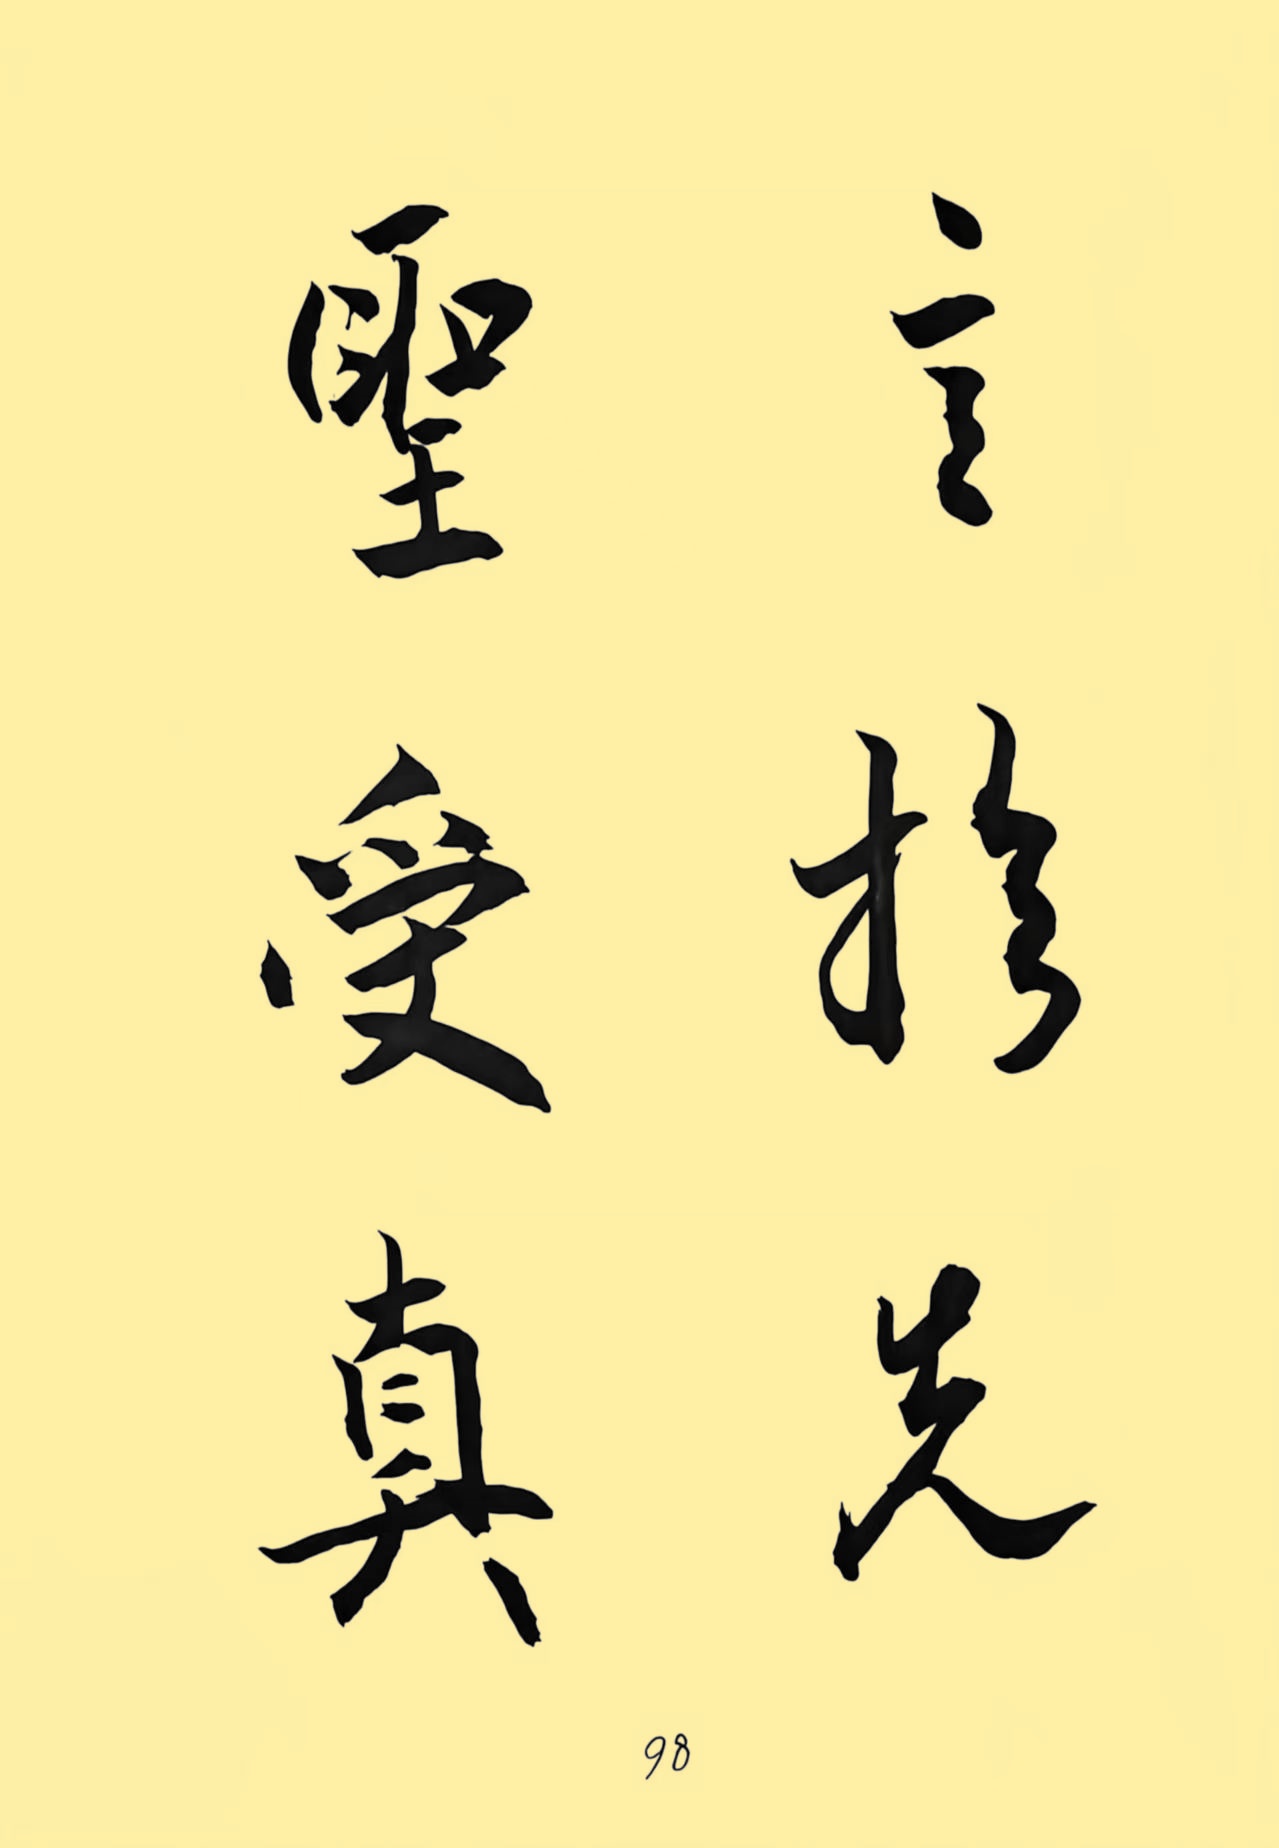 言於先
聖受真
98